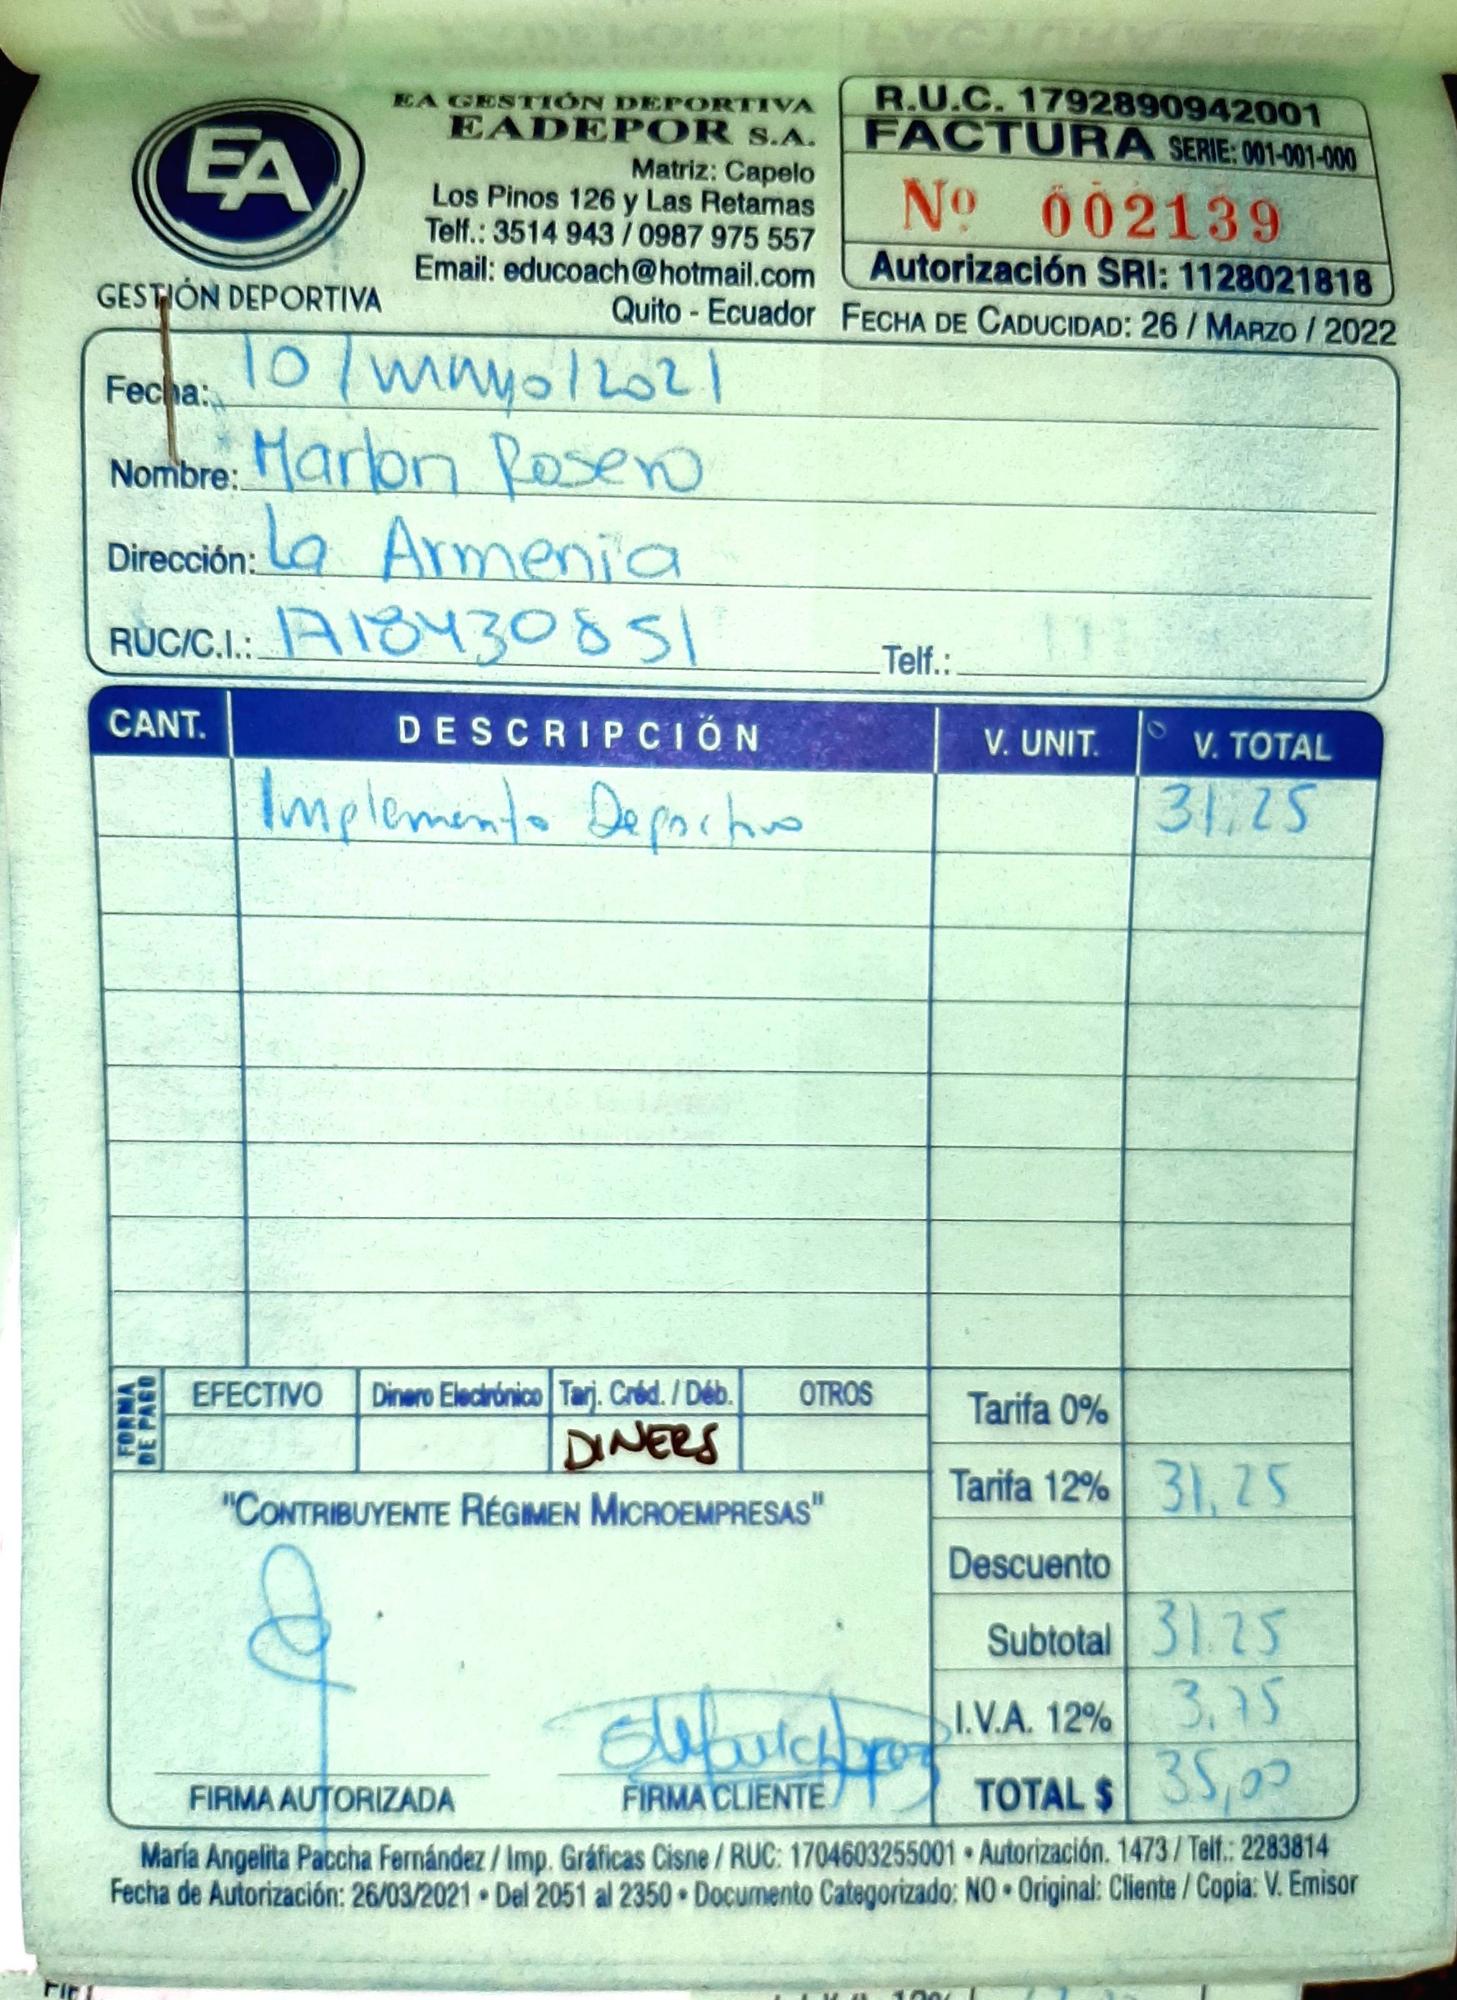 EA
GESTIÓN DEPORTIVA
EA GESTIÓN DEPORTIVA
EADEPOR S.A.
Matriz: Capelo
Los Pinos 126 y Las Retamas
Telf.: 3514 943 / 0987 975 557
Email: educoach@hotmail.com
Quito - Ecuador
R.U.C. 1792890942001
FACTURA SERIE: 001-001-000
Nº 002139
Autorización SRI: 1128021818
FECHA DE CADUCIDAD: 26 / MARZO / 2022
Fecha: 10 / mayo / 2021
Nombre: Marlon Rosero
Dirección: La Armenia
RUC/C.I.: 1718430851 Telf.:
CANT. DESCRIPCIÓN V. UNIT. V. TOTAL
Implemento Deportivo 31,25
FORMA DE PAGO
EFECTIVO Dinero Electrónico Tarj. Créd. / Déb. OTROS
DINERS
Tarifa 0%
Tarifa 12% 31,25
Descuento
Subtotal 31.25
I.V.A. 12% 3,75
TOTAL $ 35,00
"CONTRIBUYENTE RÉGIMEN MICROEMPRESAS"
FIRMA AUTORIZADA FIRMA CLIENTE
María Angelita Paccha Fernández / Imp. Gráficas Cisne / RUC: 1704603255001 • Autorización. 1473 / Telf.: 2283814
Fecha de Autorización: 26/03/2021 • Del 2051 al 2350 • Documento Categorizado: NO • Original: Cliente / Copia: V. Emisor